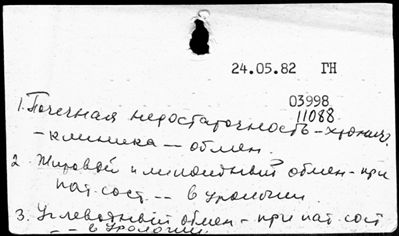 24.05.82 ГН
03998
11088
1. Почечная недостаточность - хронич.
- клиника -- обмен.
2. Жировой и липоидный обмен - при
пат. сост. -- в урологии.
3. Углеводный обмен - при пат. сост
-- в урологии.